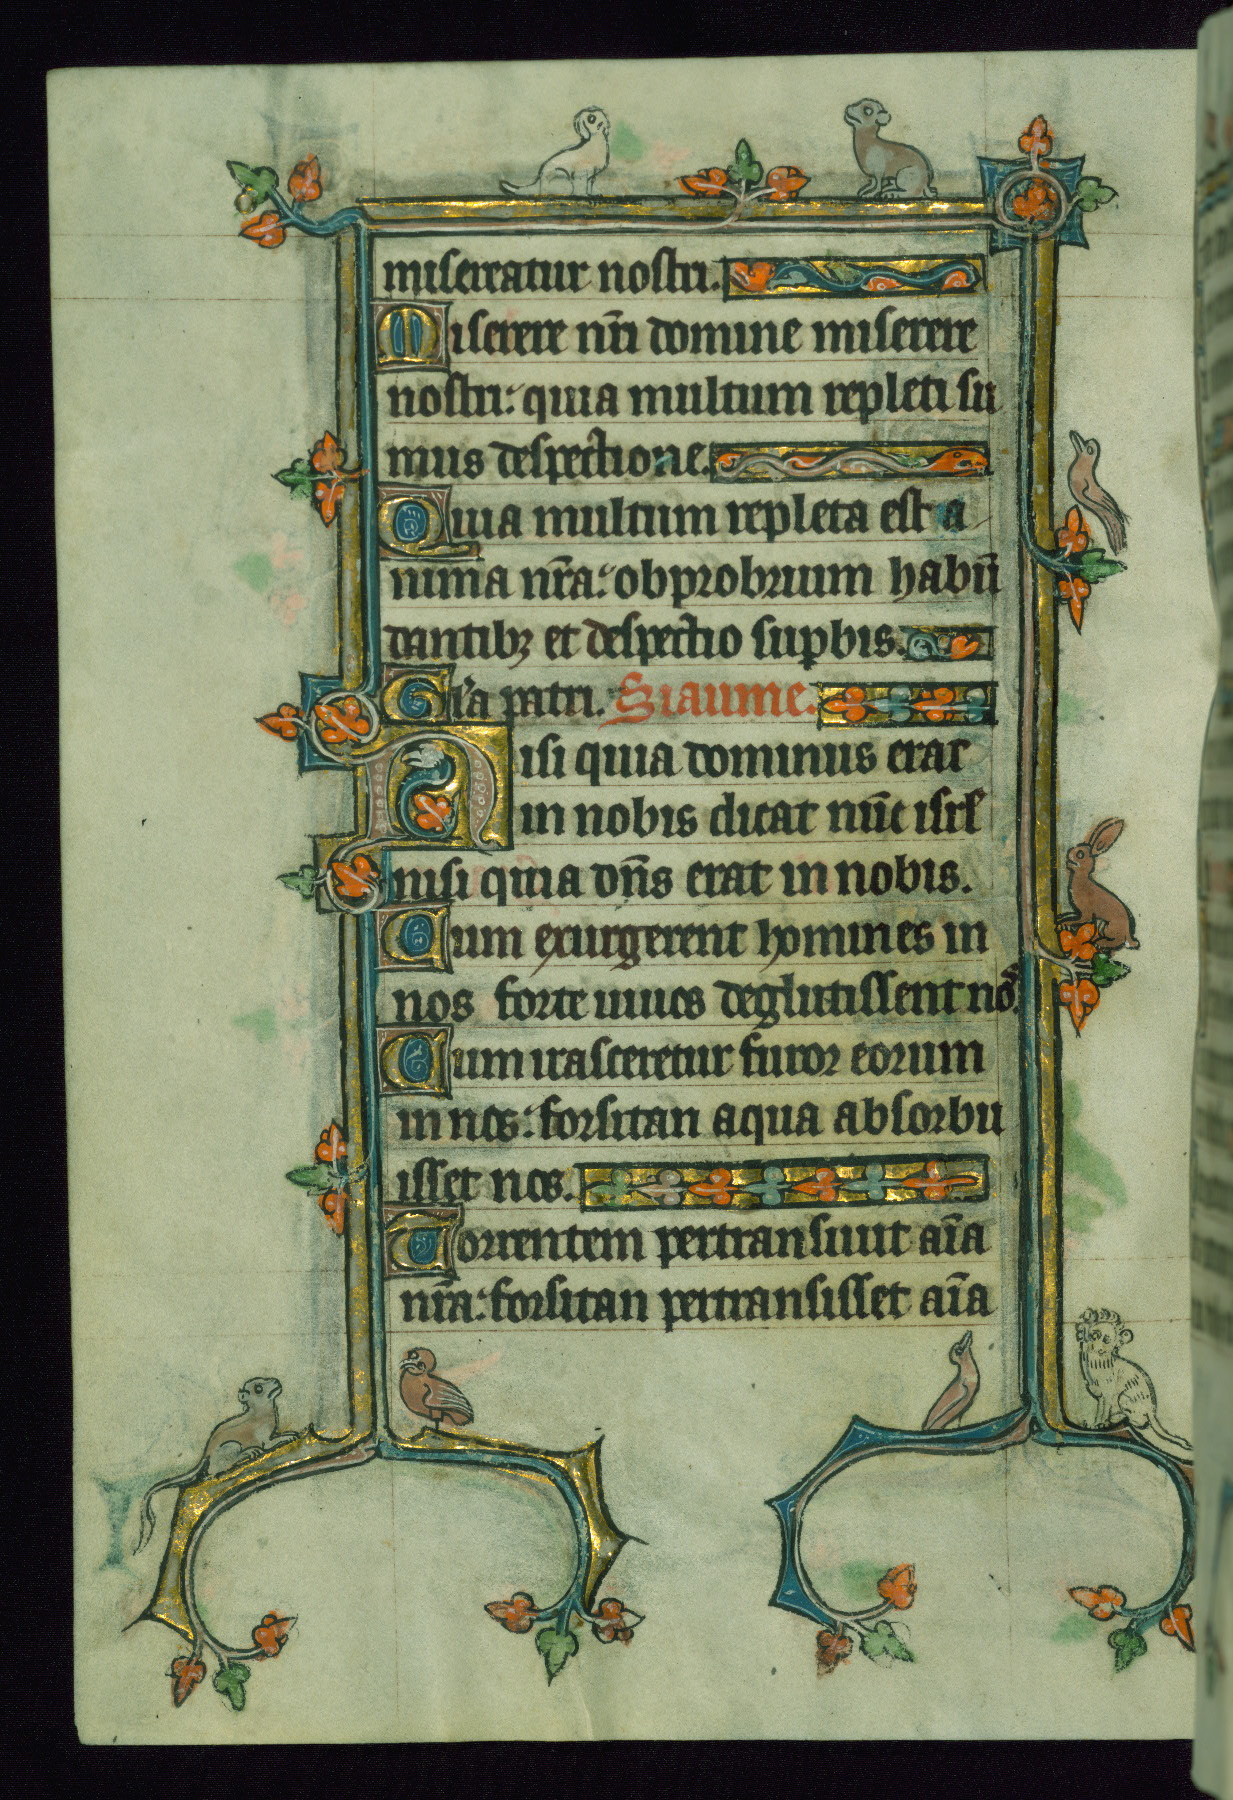 misereatur nostri.
Miserere nr̄i domine miserere
nostri: quia multum repleti su
mus despectione.
Quia multum repleta est a
nima nr̄a: obprobrium habū
dantibꝫ et despectio suꝑbis.
Gl̄a patri. Siaume.
Nisi quia dominus erat
in nobis dicat nūc isrl̄
nisi quia dn̄s erat in nobis.
Cum exurgerent homines in
nos forte uiuos deglutissent nos.
Cum irasceretur furor eorum
in nos: forsitan aqua absorbu
isset nos.
Torrentem pertransiuit aīa
nr̄a: forsitan pertransisset aīa